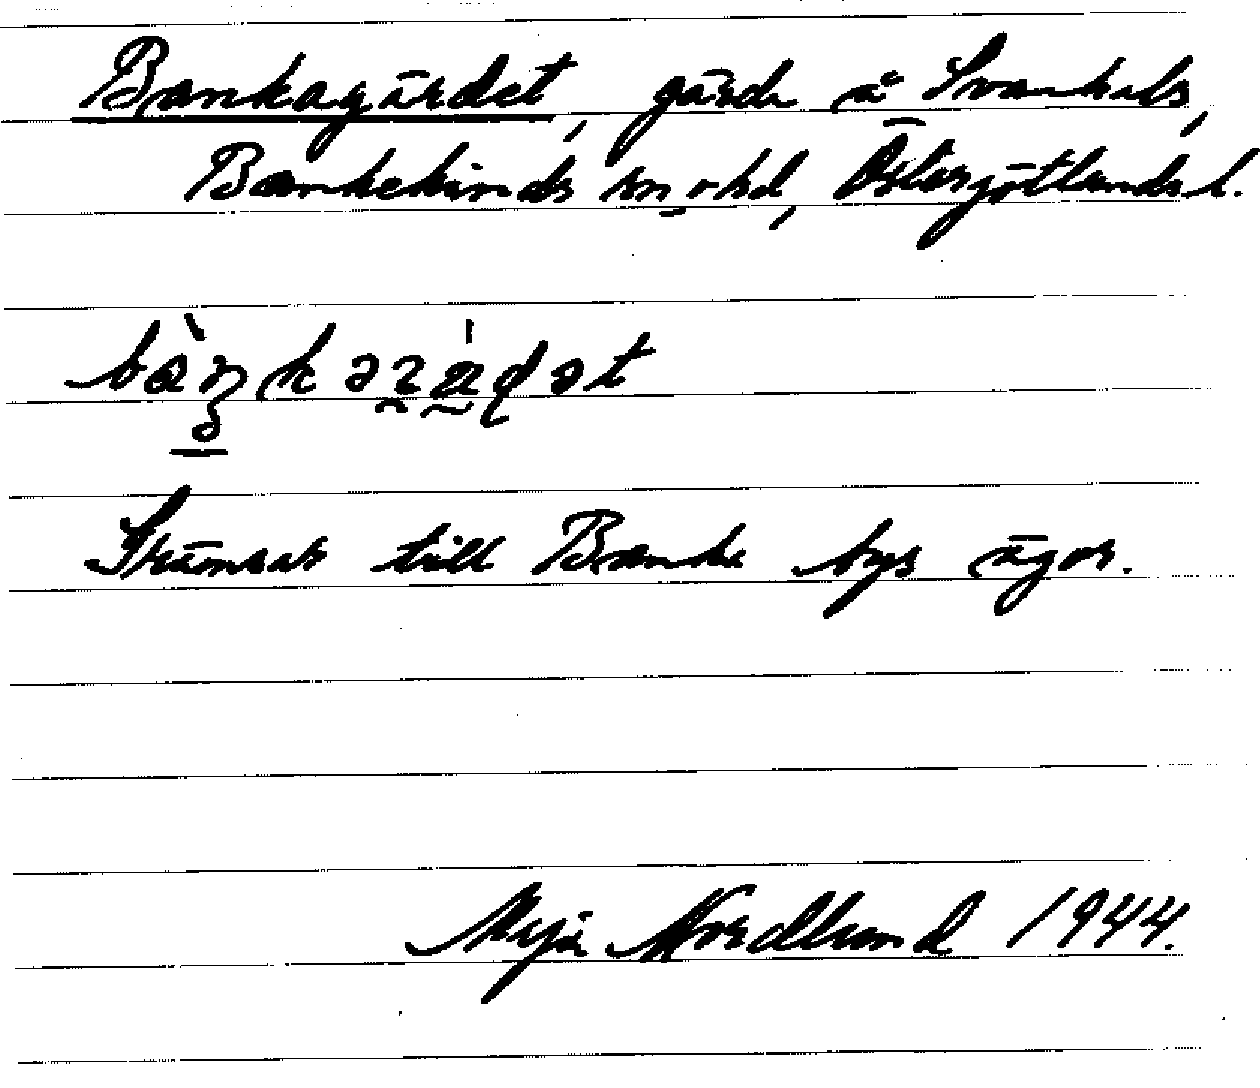 Bankagärdet, gärde å Svanhals,
Bankekinds sn o hd, Östergötlands l.
Stränsat till Banke bys ägor.
Meja Nordlund 1944.